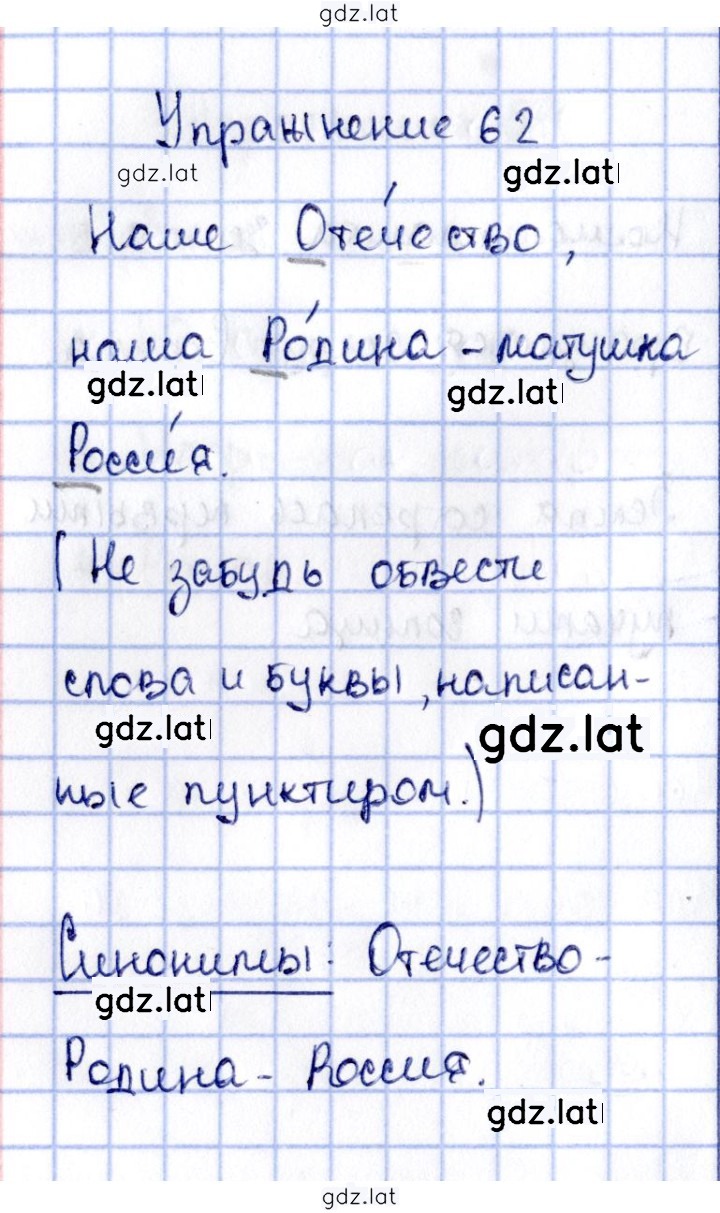 gdz.lat
Упражнение 62
gdz.lat gdz.lat
Наше Оте́чество,
наша Ро́дина - матушка
gdz.lat gdz.lat
Росси́я.
(Не забудь обвести
слова и буквы, написан-
gdz.lat gdz.lat
ные пунктиром.)
Синонимы: Отечество -
gdz.lat
Родина - Россия.
gdz.lat
gdz.lat